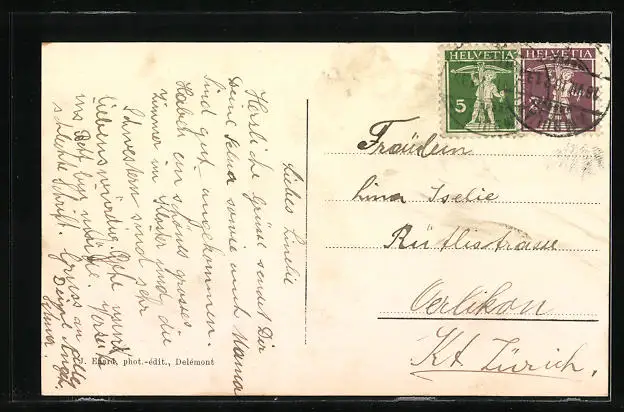 HELVETIA
5
HELVETIA
Fräulein
Lina Iselie
Rütlistrasse
Oerlikon
Kt. Zürich.
Liebes Linelie
Herzliche Grüsse sendet Dir
Deine Selma sowie auch Mama
Sind gut angekommen.
Haben ein schönes grosses
Zimmer im Kloster und die
Schwestern sind sehr
liebenswürdig.
ins Bett
schlechte Schrift. Gruss an alle
Deine
Eward, phot.-édit., Delémont